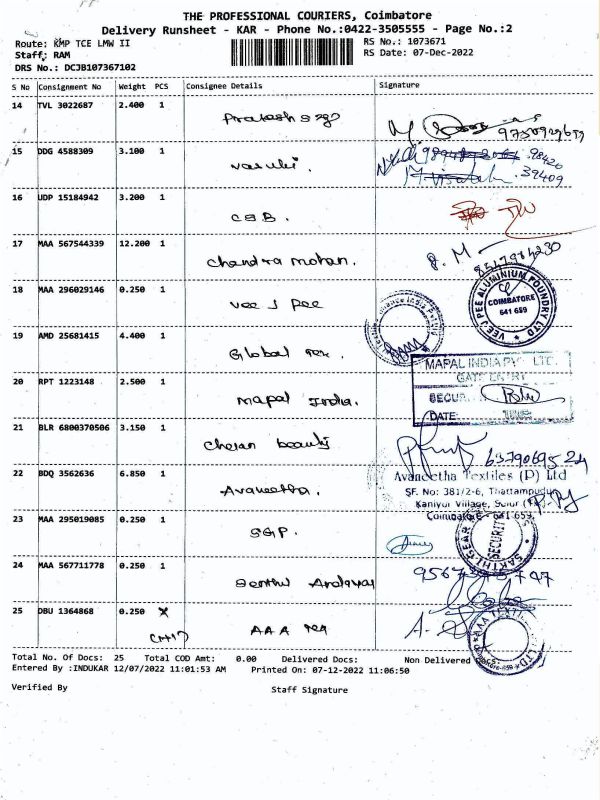 THE PROFESSIONAL COURIERS, Coimbatore
Delivery Runsheet - KAR - Phone No.:0422-3505555 - Page No.:2
Route: KMP TCE LMW II
RS No.: 1073671
Staff: RAM
RS Date: 07-Dec-2022
DRS No.: DCJB107367102
S No Consignment No Weight PCS Consignee Details Signature
14 TVL 3022687 2.400 1
15 DDG 4588309 3.100 1 Vasuki.
98420
39409
16 UDP 15184942 3.200 1 CSB.
17 MAA 567544339 12.200 1 Chandra mohan.
18 MAA 296029146 0.250 1 Vee J Pee
VEE J PEE ALUMINIUM FOUNDRY LTD
COIMBATORE
641 659
19 AMD 25681415 4.400 1 Global Tex.
MAPAL INDIA PVT. LTC.
GATE ENTRY
20 RPT 1223148 2.500 1 Mapal India.
SECUR.
DATE:
21 BLR 6800370506 3.150 1 Cheran beauty
6379069524
22 BDQ 3562636 6.850 1 Avaneetha.
Avaneetha Textiles (P) Ltd
SF. No: 381/2-6, Thattampudur
Kaniyur Village, Sulur
Coimbatore - 641 659
23 MAA 295019085 0.250 1 SGP.
SAKTHI GEAR
SECURITY
24 MAA 567711778 0.250 1 Senthil
25 DBU 1364868 0.250 AAA Tex
Total No. Of Docs: 25 Total COD Amt: 0.00 Delivered Docs: Non Delivered Docs:
Entered By :INDUKAR 12/07/2022 11:01:53 AM Printed On: 07-12-2022 11:06:50
Verified By
Staff Signature